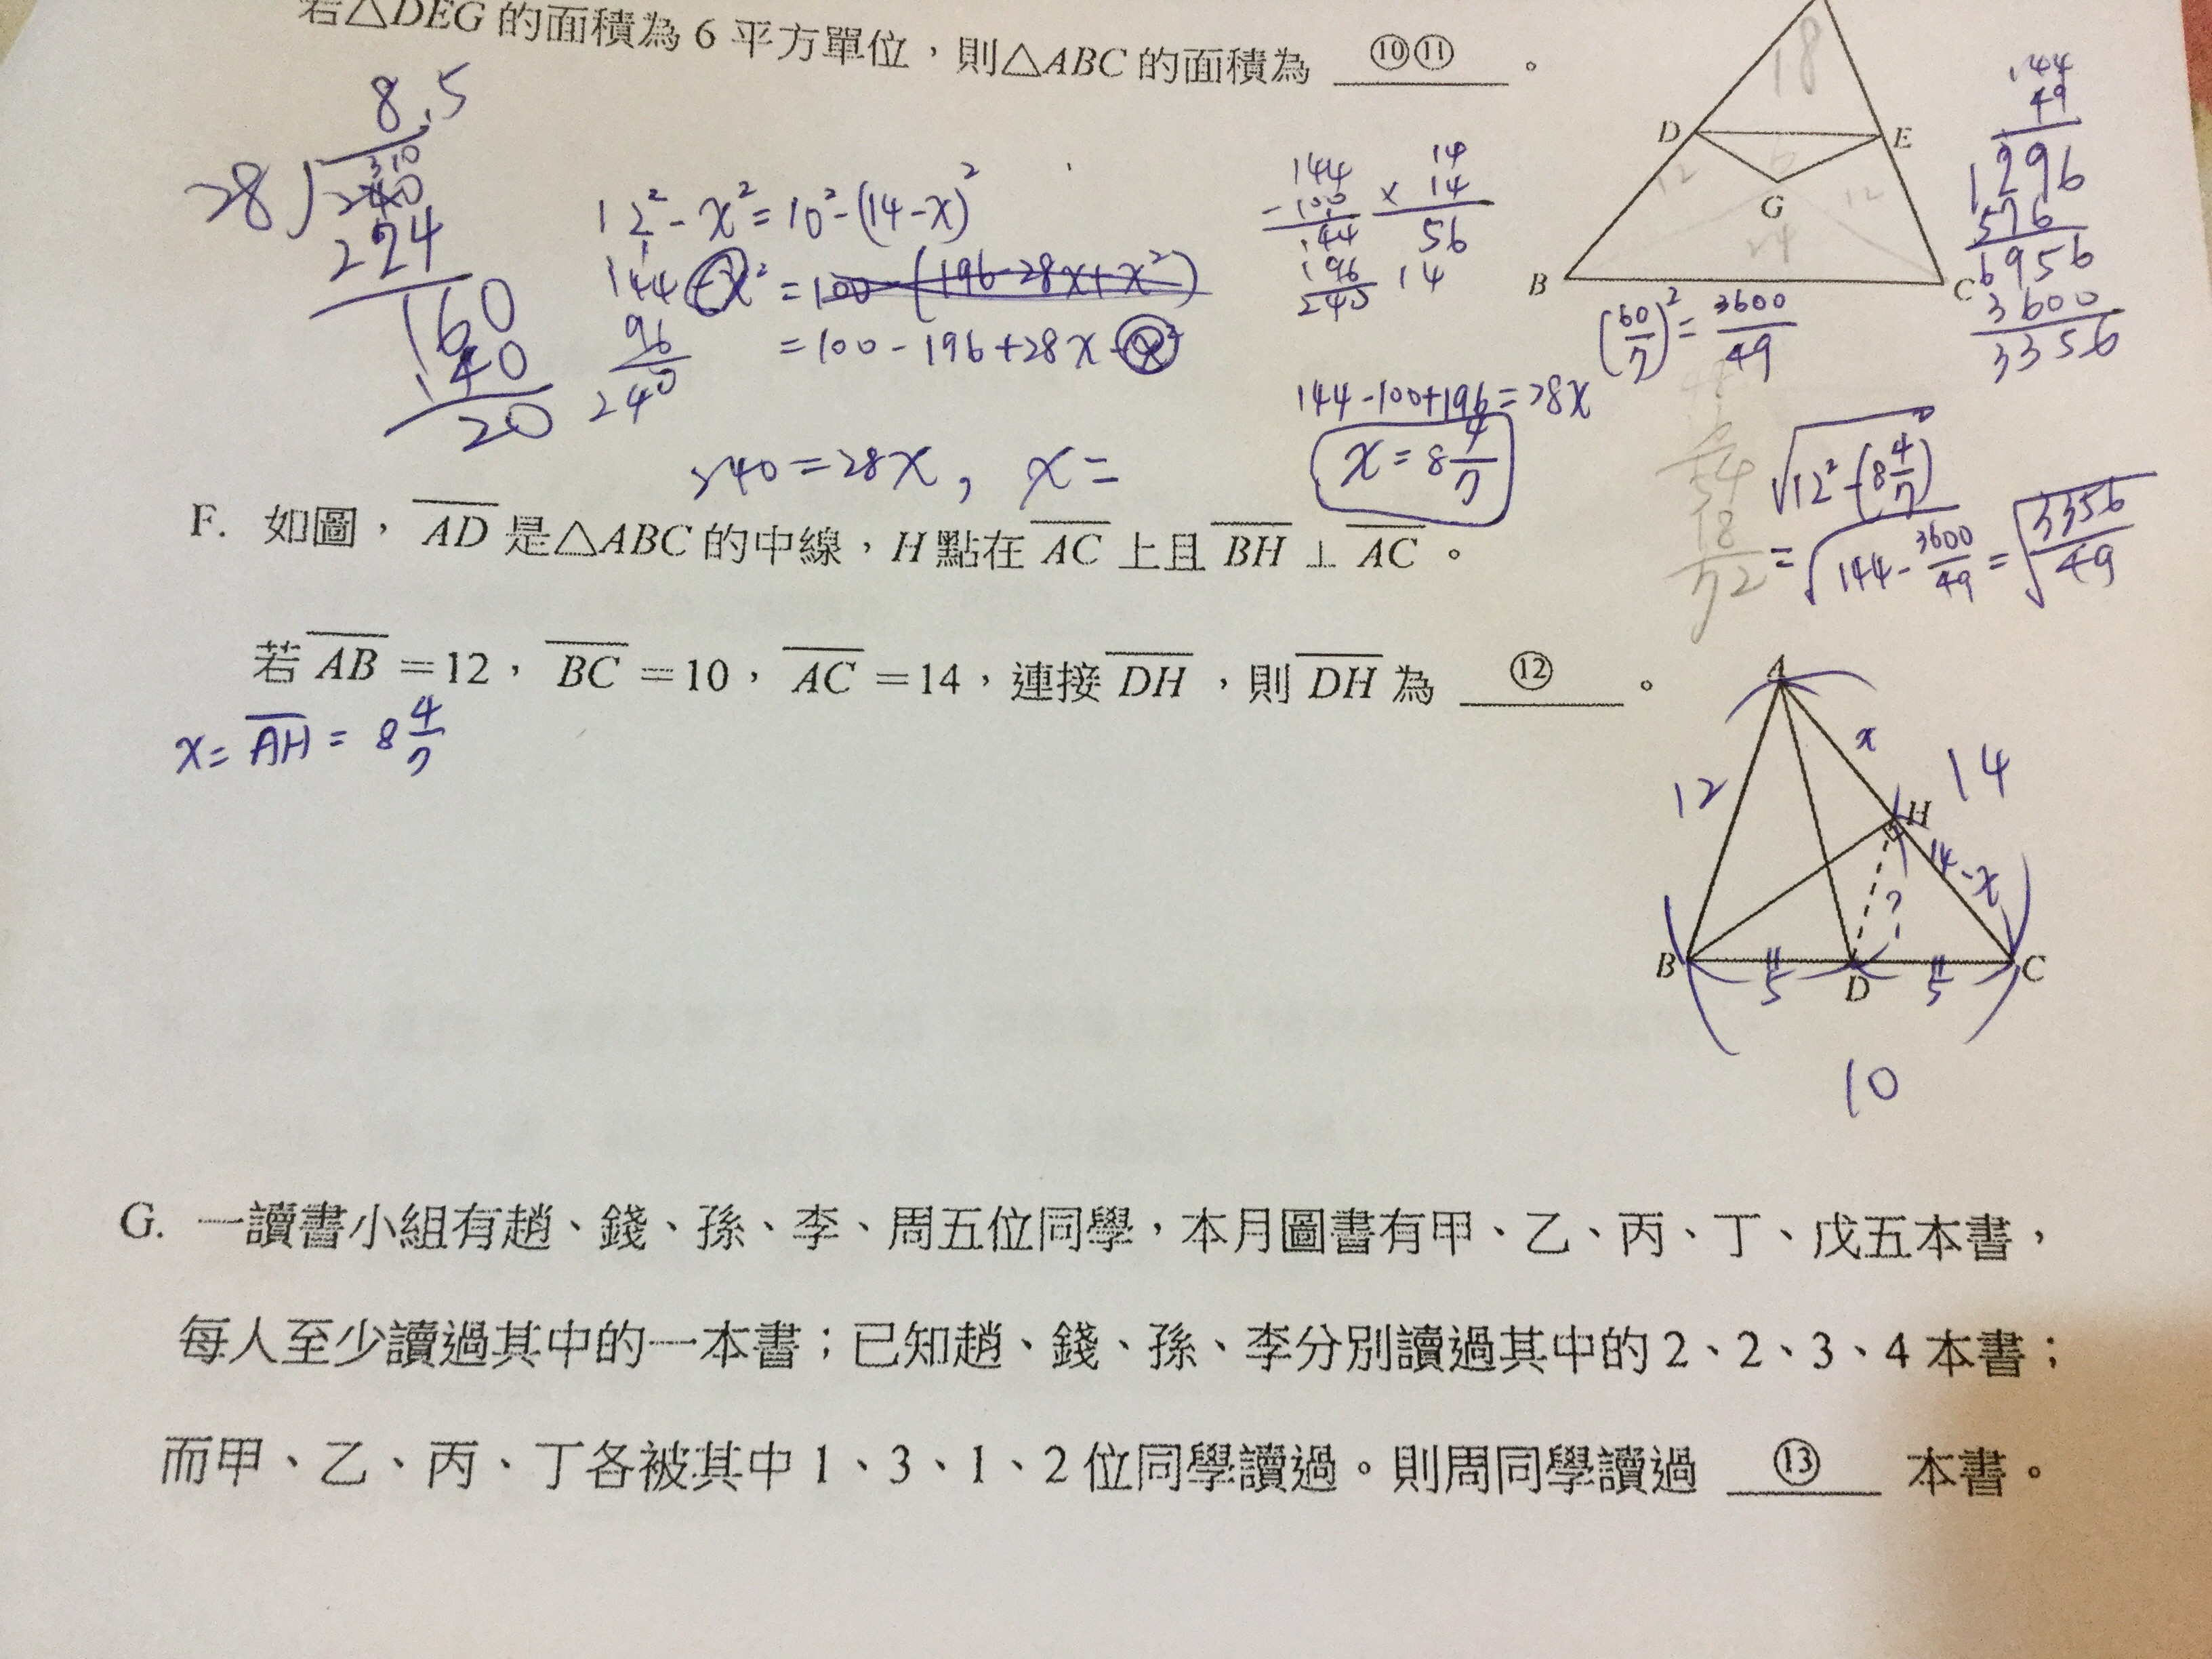 若△DEG的面積為6平方單位，則△ABC的面積為 ⑩⑪ 。
18
D
E
6
G
12
12
24
B
C
8.5
28
310
240
224
160
140
20
12²-x²=10²-(14-x)²
144-x²=100-(196-28x+x²)
=100-196+28x-x²
96
240
240=28x, x=
144
-100
144
196
240
14
×14
56
14
144-100+196=28x
x=8 4/7
(60/7)²=3600/49
144
49
1296
576
6956
3600
3356
54
18
72
√12²-(8 4/7)²
=√144-3600/49=√3356/49
F. 如圖，AD是△ABC的中線，H點在AC上且BH⊥AC。
若AB=12，BC=10，AC=14，連接DH，則DH為 ⑫ 。
x=AH=8 4/7
A
x
14
12
H
14-x
?
B
5
D
5
C
10
G. 一讀書小組有趙、錢、孫、李、周五位同學，本月圖書有甲、乙、丙、丁、戊五本書，
每人至少讀過其中的一本書；已知趙、錢、孫、李分別讀過其中的2、2、3、4本書；
而甲、乙、丙、丁各被其中1、3、1、2位同學讀過。則周同學讀過 ⑬ 本書。